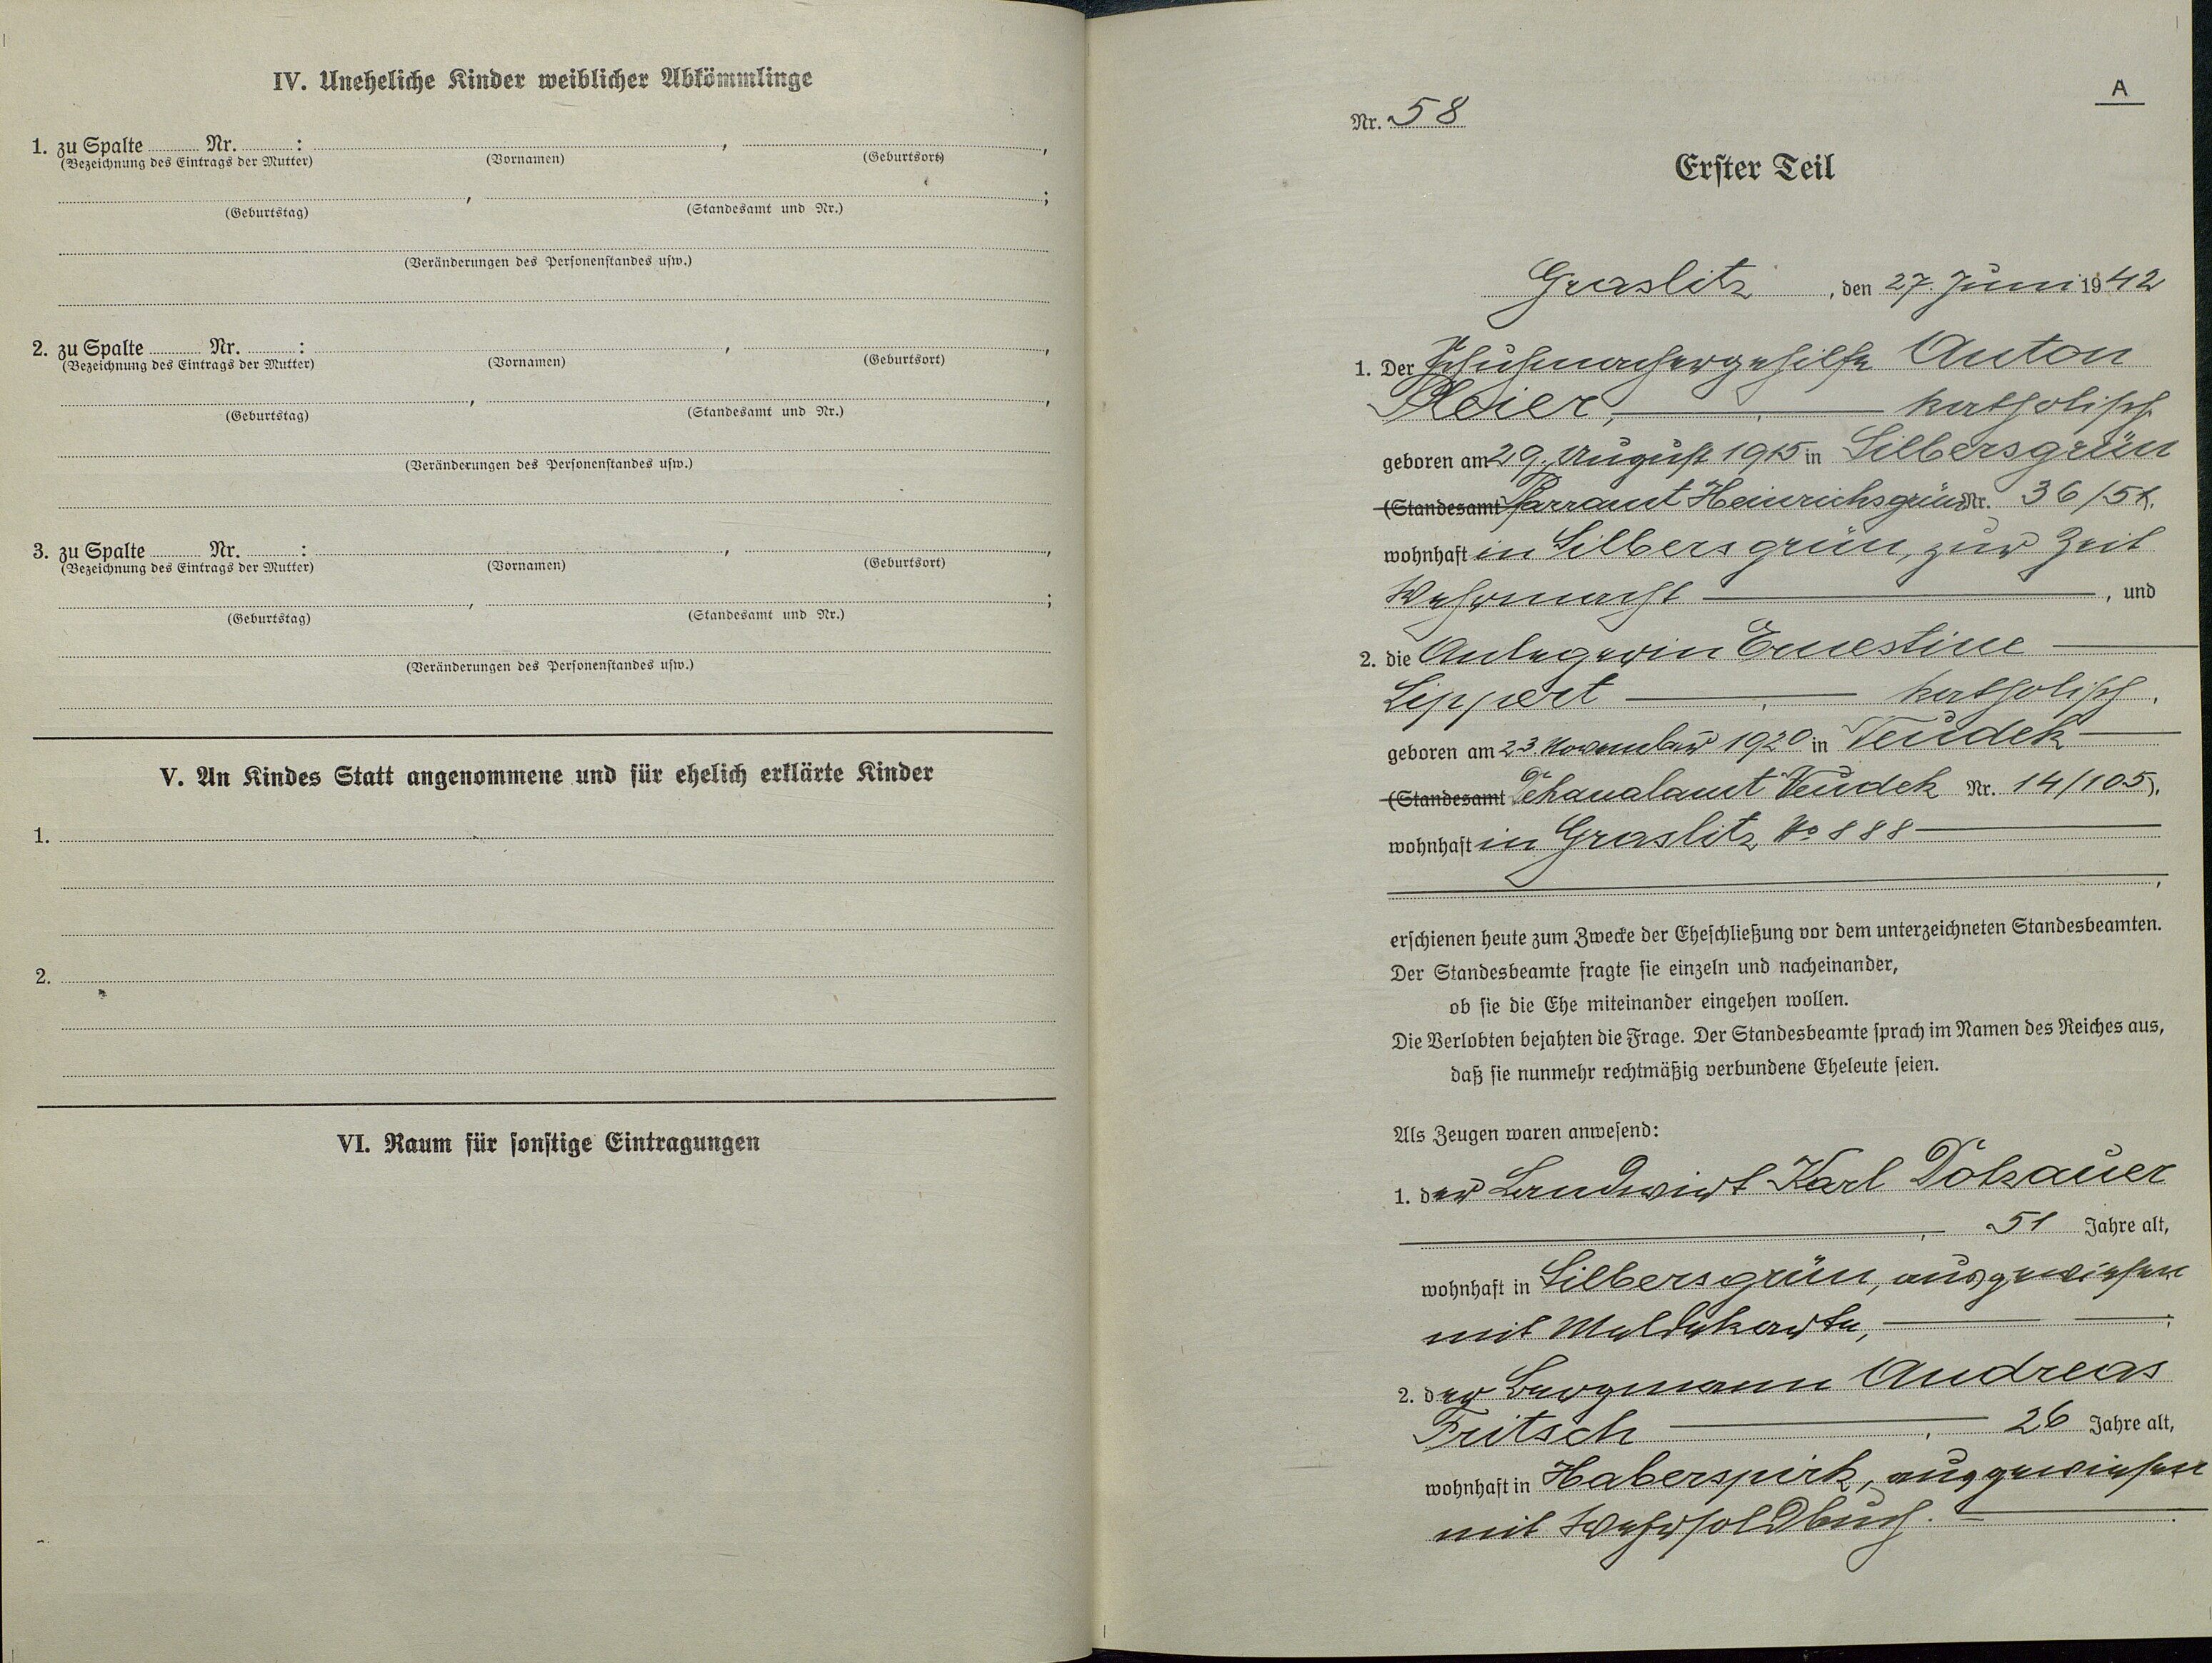 IV. Uneheliche Kinder weiblicher Abkömmlinge
1. zu Spalte ........ Nr. ........ :
(Bezeichnung des Eintrags der Mutter) (Vornamen) , (Geburtsort) ,
(Geburtstag) , (Standesamt und Nr.) ;
(Veränderungen des Personenstandes usw.)
2. zu Spalte ........ Nr. ........ :
(Bezeichnung des Eintrags der Mutter) (Vornamen) , (Geburtsort) ,
(Geburtstag) , (Standesamt und Nr.) ,
(Veränderungen des Personenstandes usw.)
3. zu Spalte ........ Nr. ........ :
(Bezeichnung des Eintrags der Mutter) (Vornamen) , (Geburtsort) ,
(Geburtstag) , (Standesamt und Nr.) ;
(Veränderungen des Personenstandes usw.)
V. An Kindes Statt angenommene und für ehelich erklärte Kinder
1.
2.
VI. Raum für sonstige Eintragungen
A
Nr. 58
Erster Teil
Graslitz , den 27. Juni 1942
1. Der Schuhmachergehilfe Anton
Pleier, katholisch
geboren am 29. August 1915 in Silbersgrün
(Standesamt Pfarramt Heinrichsgrün Nr. 36/51).
wohnhaft in Silbersgrün, zur Zeit
Wehrmacht , und
2. die Anlegerin Ernestine
Lippert , katholisch ,
geboren am 23. November 1920 in Neudek
(Standesamt Dekanalamt Neudek Nr. 14/105),
wohnhaft in Graslitz No 888
,
erschienen heute zum Zwecke der Eheschließung vor dem unterzeichneten Standesbeamten.
Der Standesbeamte fragte sie einzeln und nacheinander,
ob sie die Ehe miteinander eingehen wollen.
Die Verlobten bejahten die Frage. Der Standesbeamte sprach im Namen des Reiches aus,
daß sie nunmehr rechtmäßig verbundene Eheleute seien.
Als Zeugen waren anwesend:
1. der Landwirt Karl Dotzauer
, 51 Jahre alt,
wohnhaft in Silbersgrün, ausgewiesen
mit Meldekarte, ;
2. der Bergmann Andreas
Fritsch , 26 Jahre alt,
wohnhaft in Haberspirk, ausgewiesen
mit Wehrsoldbuch.